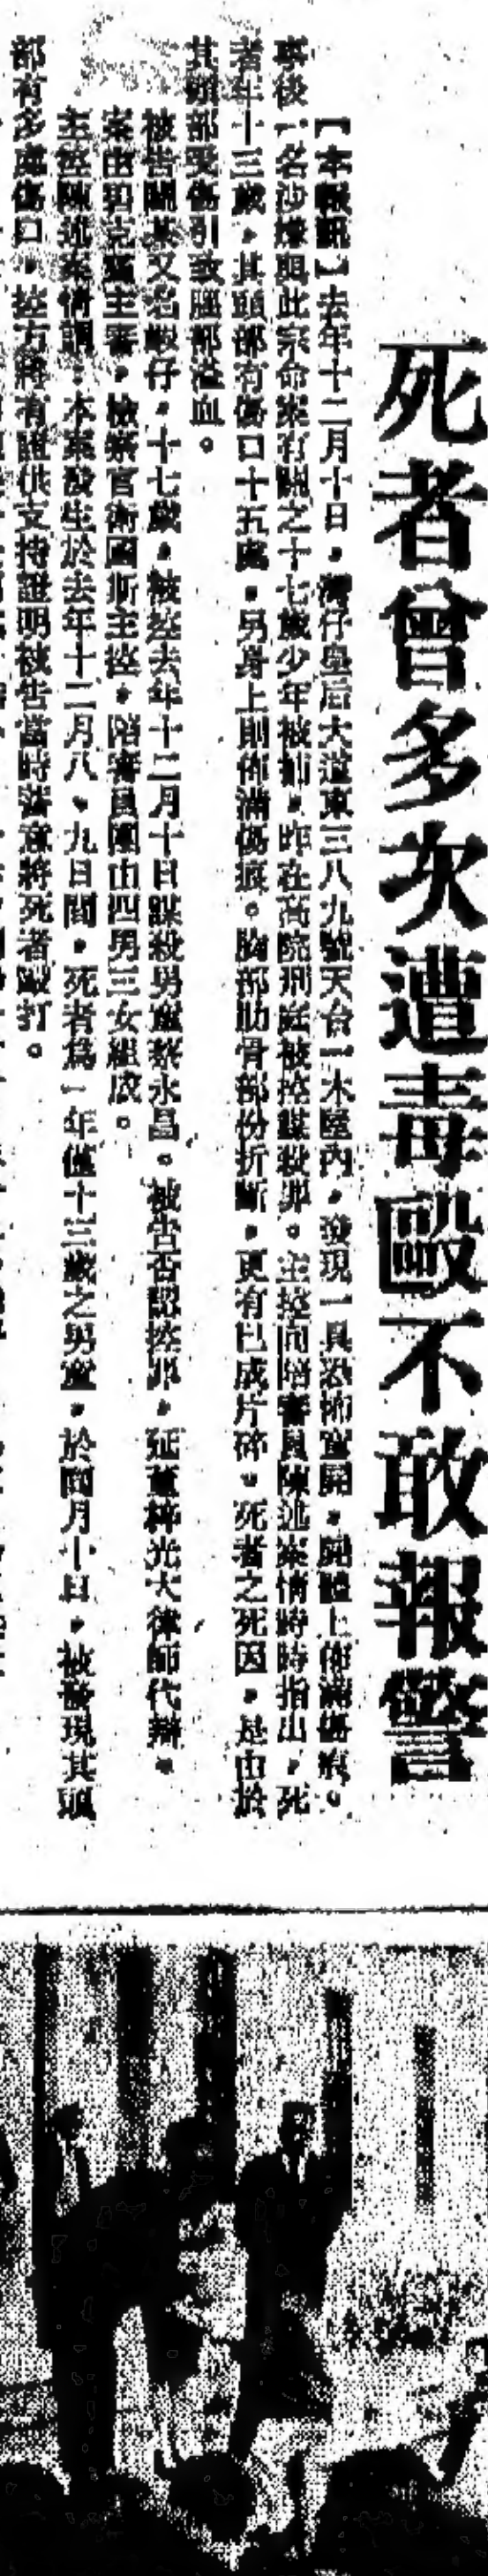 死者曾多次遭毒毆不敢報警
【本報訊】去年十二月十日，灣仔皇后大道東三八九號天台一木屋內，發現一具恐怖童屍，屍體上佈滿傷痕。
事後一名涉嫌與此宗命案有關之十七歲少年被捕，昨在高院刑庭被控謀殺罪。主控向陪審員陳述案情時時指出，死
者年十三歲，其頭部有傷口十五處，另身上則佈滿傷痕。胸部肋骨部份折斷，更有已成片碎，死者之死因，是由於
其頭部受傷引致腦部溢血。
被告關某又名蝦仔，十七歲，被控去年十二月十日謀殺男童蔡永昌。被告否認控罪，延 梓光大律師代辯。
案由 主審，檢察官衛國斯主控，陪審員團由四男三女組成。
主控陳述案情謂：本案發生於去年十二月八、九日間，死者為一年僅十三歲之男童，於同月十日，被發現其頭
部有多處傷口，控方將有證供支持證明被告當時蓄意將死者毆打。